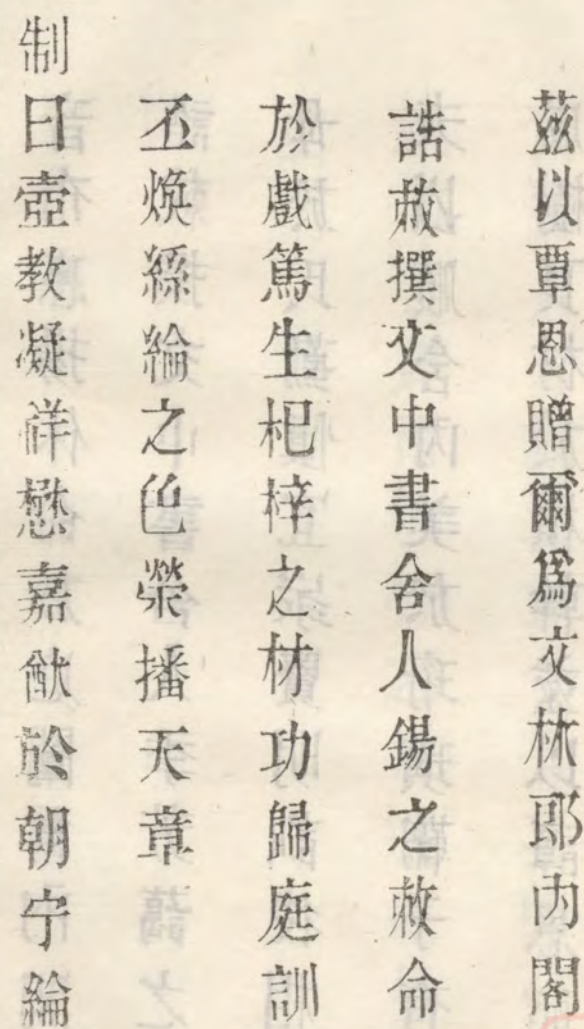 茲以覃恩贈爾爲文林郎内閣
誥敕撰文中書舍人錫之敕命
於戲篤生杞梓之材功歸庭訓
丕煥絲綸之色榮播天章
制曰壼教凝祥懋嘉猷於朝宁綸